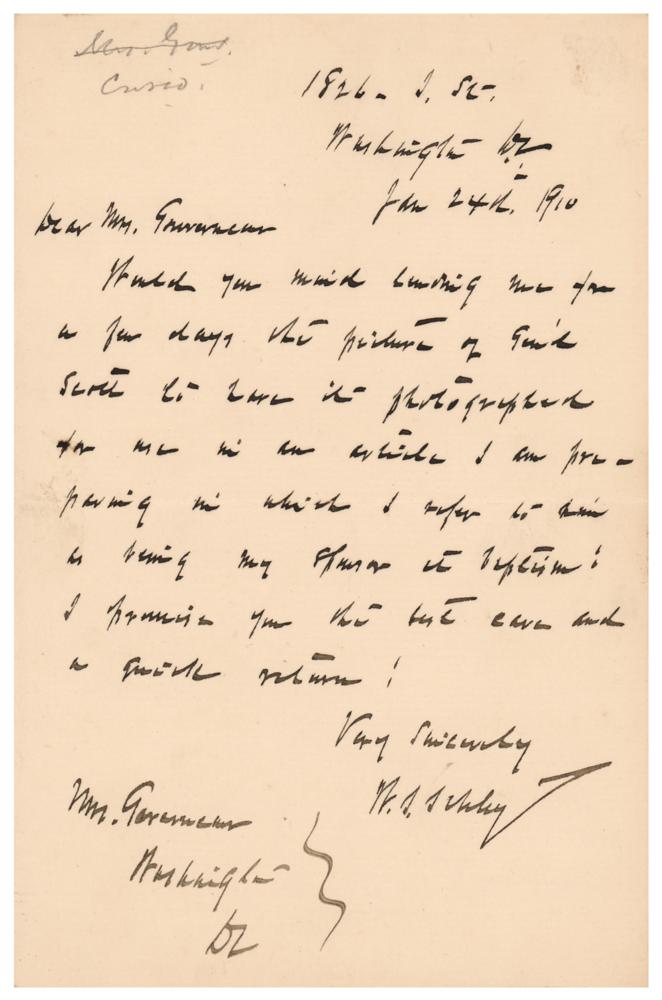 1826 - I. St.
Washington DC
Jan 24th, 1910
Dear Mrs. Gouverneur
Would you mind lending me for
a few days the picture of Gen'l
Scott to have it photographed
for use in an article I am pre-
paring in which I refer to him
as being my sponsor at baptism!
I promise you the best care and
a quick return!
Very Sincerely
W. S. Schley
Mrs. Gouverneur
Washington
DC